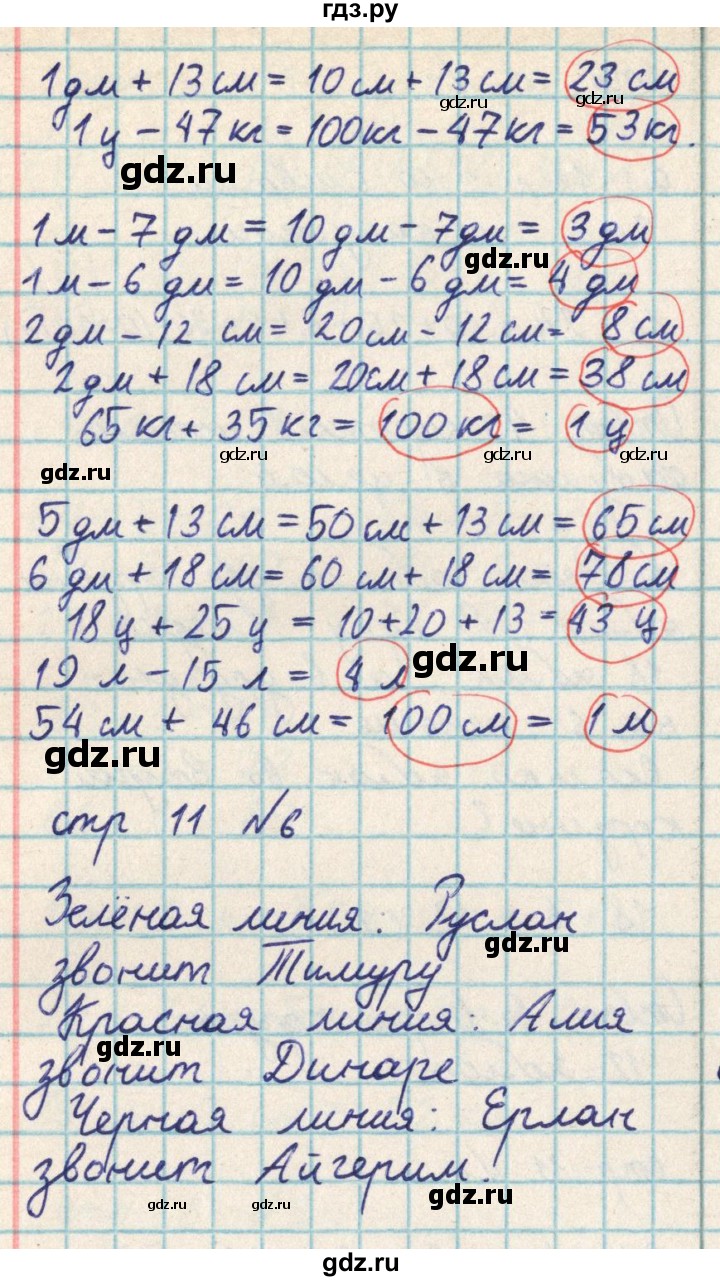 гдз.ру
1дм + 13 см = 10 см + 13 см = 23 см
gdz.ru gdz.ru
1 ц - 47 кг = 100 кг - 47 кг = 53 кг.
gdz.ru
1 м - 7 дм = 10 дм - 7 дм = 3 дм
gdz.ru
1 м - 6 дм = 10 дм - 6 дм = 4 дм
2 дм - 12 см = 20 см - 12 см = 8 см
2 дм + 18 см = 20 см + 18 см = 38 см
65 кг + 35 кг = 100 кг = 1 ц
gdz.ru gdz.ru gdz.ru gdz.ru
5 дм + 13 см = 50 см + 13 см = 65 см
6 дм + 18 см = 60 см + 18 см = 78 см
18 ц + 25 ц = 10 + 20 + 13 = 43 ц
gdz.ru
19 л - 15 л = 4 л
54 см + 46 см = 100 см = 1 м
gdz.ru
стр 11 №6
Зелёная линия. Руслан
gdz.ru
звонит Тимуру
Красная линия: Алия
gdz.ru
звонит Динаре
Черная линия: Ерлан
звонит Айгерим.
gdz.ru gdz.ru gdz.ru
gdz.ru